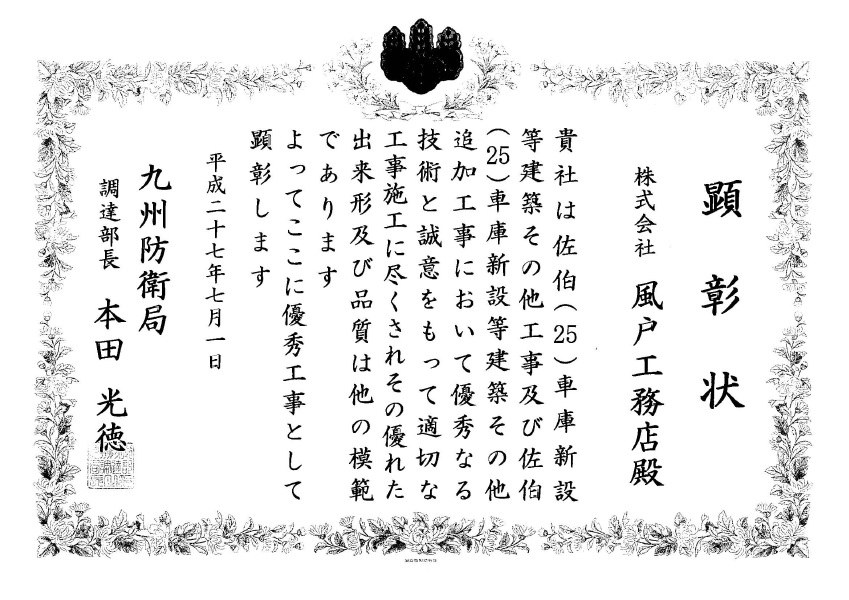 顕彰状
株式会社 風戸工務店殿
貴社は佐伯(25)車庫新設
等建築その他工事及び佐伯
(25)車庫新設等建築その他
追加工事において優秀なる
技術と誠意をもって適切な
工事施工に尽くされその優れた
出来形及び品質は他の模範
であります
よってここに優秀工事として
顕彰します
平成二十七年七月一日
九州防衛局
調達部長 本田 光徳